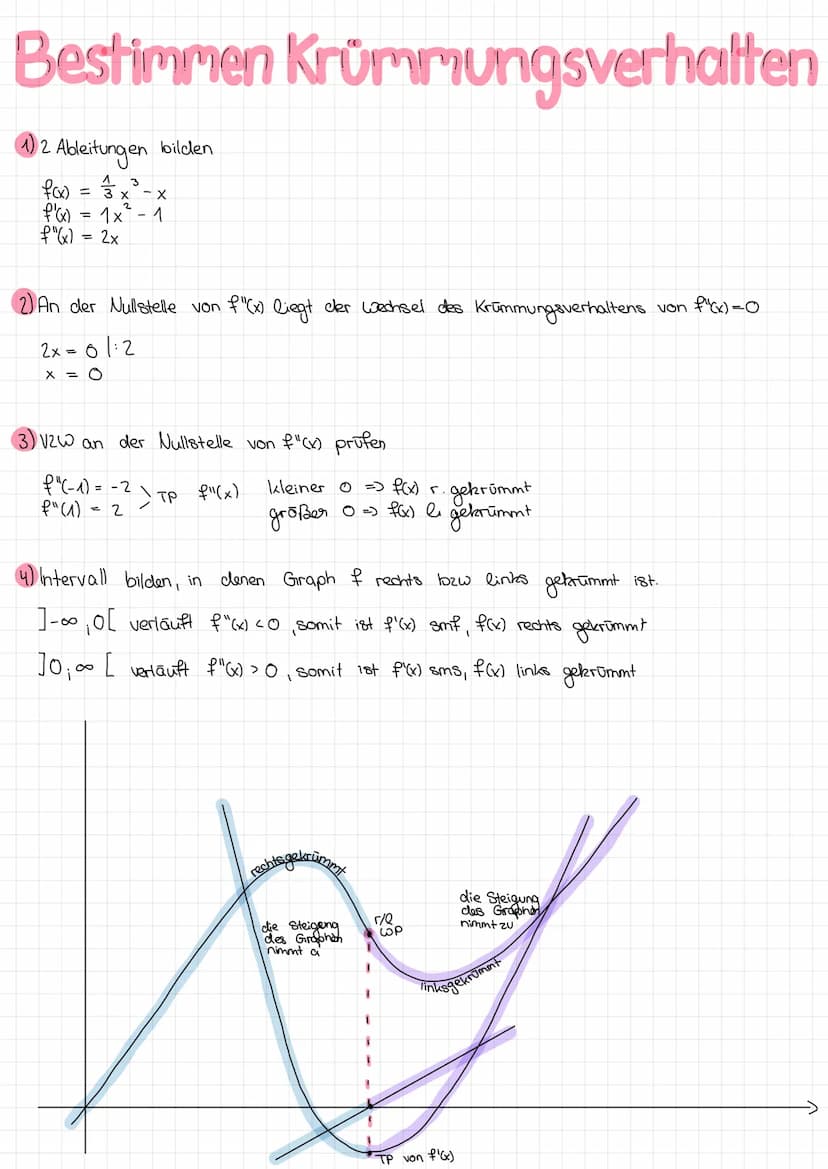 Bestimmen Krümmungsverhalten
1) 2 Ableitungen bilden
f(x) = 1/3 x³ - x
f'(x) = 1x² - 1
f"(x) = 2x
2) An der Nullstelle von f"(x) liegt der Wechsel des Krümmungsverhaltens von f"(x)=0
2x = 0 |:2
x = 0
3) VZW an der Nullstelle von f"(x) prüfen
f"(-1) = -2 > TP f"(x) kleiner 0 => f(x) r. gekrümmt
f"(1) = 2 größer 0 => f(x) l. gekrümmt
4) Intervall bilden, in denen Graph f rechts bzw links gekrümmt ist.
]-∞,0[ verläuft f"(x) <0, somit ist f'(x) smf, f(x) rechts gekrümmt
]0;∞[ verläuft f"(x) > 0, somit ist f'(x) sms, f(x) links gekrümmt
rechtsgekrümmt
die Steigung
des Graphen
nimmt a
r/l
WP
die Steigung
des Graphen
nimmt zu
linksgekrümmt
TP von f'(x)